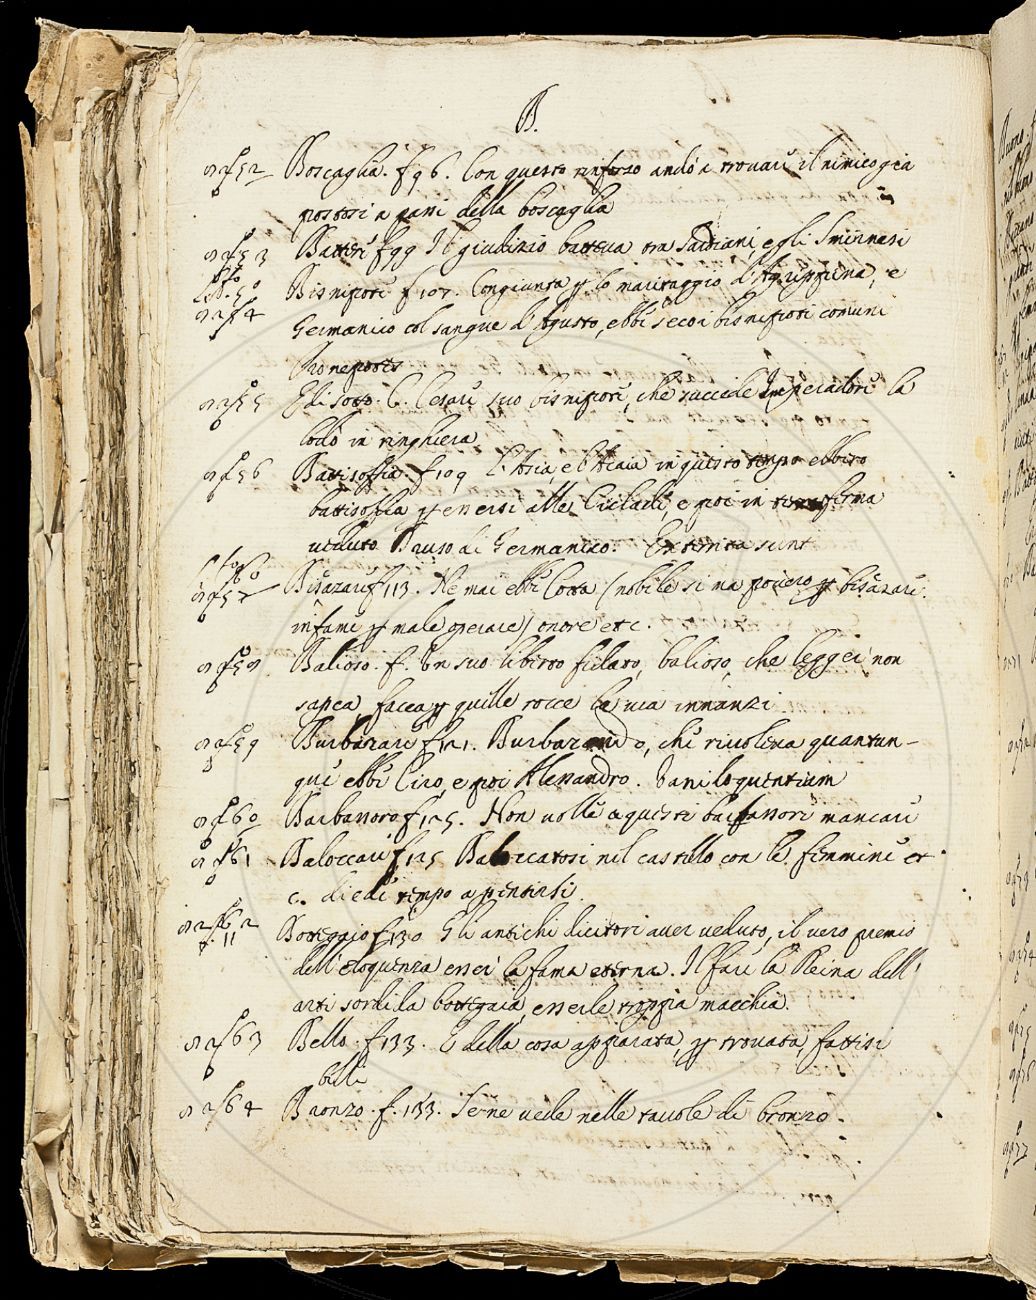 B.
Boscaglia. f. 96. Con questo rinforzo andò a trovare il nimico già
postosi a pari della boscaglia
Battere f 99 Il giudizio batteva tra Sardiani, e gli Smirnesi
Bisnipote f 107. Congiunta p lo maritaggio d'Agrippina, e
Germanico col sangue d'Agusto, ebbe seco i bisnipoti comuni
Pronepotes
E di sotto. C. Cesare suo bisnipote, che succede Imperadore la
lodò in ringhiera
Battisoffia. f 109 L'Asia, e l'Acaia in questo tempo ebbero
battisoffia p essersi alle Cicladi, e poi in terra ferma
veduto Druso di Germanico. Exterrita sunt
Biscazare f 113. Ne mai ebbe Cotta (nobile si ma povero p biscazare.
infame p male operare) onore etc.
Balioso. f. In suo libretto fidato, balioso, che legger non
sapea facea p quelle rocce la via innanzi
Burbanzare f 121. Burbanzando, che rivoleva quantun-
que ebbe Ciro, e poi Alessandro. Vaniloquentiam
Barbassoro f 125. Non volle a questi barbassori mancare
Baloccare f 125 Baloccatosi nel castello con le femmine et
c. diede tempo a pentirsi.
Botteggio f 130 Gli antichi dicitori aver veduto, il vero premio
dell'eloquenza esser la fama eterna. Il fare la Reina dell'
arti sordida bottegaia, esserle troppia macchia.
Bello. f 133. E della cosa appiarata, p trovata, fattisi
belli
Bronzo. f. 133. Serne vede nelle tavole di bronzo.